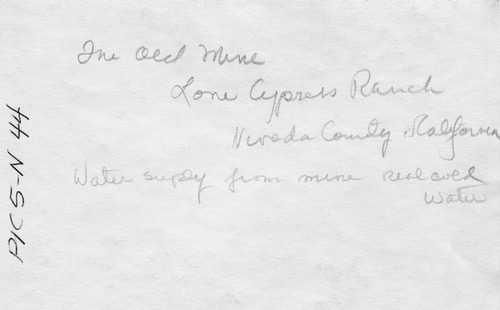 The Old Mine
Lone Cypress Ranch
Nevada County, California
Water suply from mine real cold
water
PICS-N 44